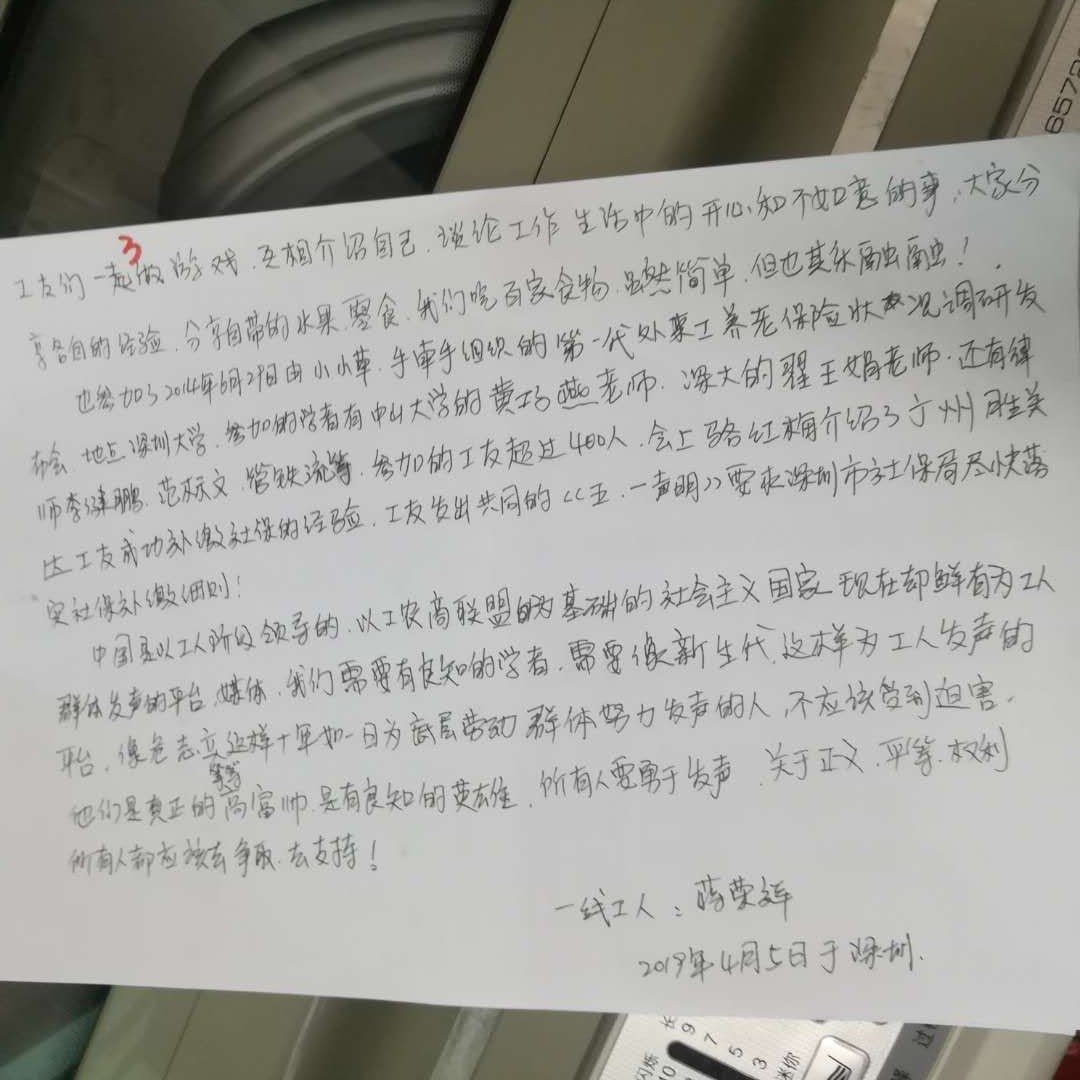 3
工友们一起做游戏.互相介绍自己.谈论工作生活中的开心和不如意的事.大家分
享各自的经验.分享自带的水果.零食.我们吃百家食物.虽然简单.但也其乐融融!
也参加了2014年6月29日由小小草.手牵手组织的第一代外来工养老保险状况调研发
布会.地点深圳大学.参加的学者有中山大学的黄巧燕老师.深大的翟玉娟老师.还有律
师李 鹏.范 文.管铁流等.参加的工友超过400人.会上骆红梅介绍了广州胜美
达工友成功补缴社保的经验.工友发出共同的<<五.一声明>>要求深圳市社保局尽快落
实社保补缴细则!
中国是以工人阶级领导的.以工农商联盟为基础的社会主义国家.现在却鲜有为工人
群体发声的平台.媒体.我们需要有良知的学者.需要像新生代.这样为工人发声的
平台.像危志立这样十年如一日为底层劳动群体努力发声的人,不应该受到迫害.
等等
他们是真正的高富帅.是有良知的英雄.所有人要勇于发声.关于正义.平等.权利
所有人都应该去争取.去支持!
一线工人:蒋荣辉
2019年4月5日于深圳.
6578
长 9 7 5 3 迷你
闪烁 10
过